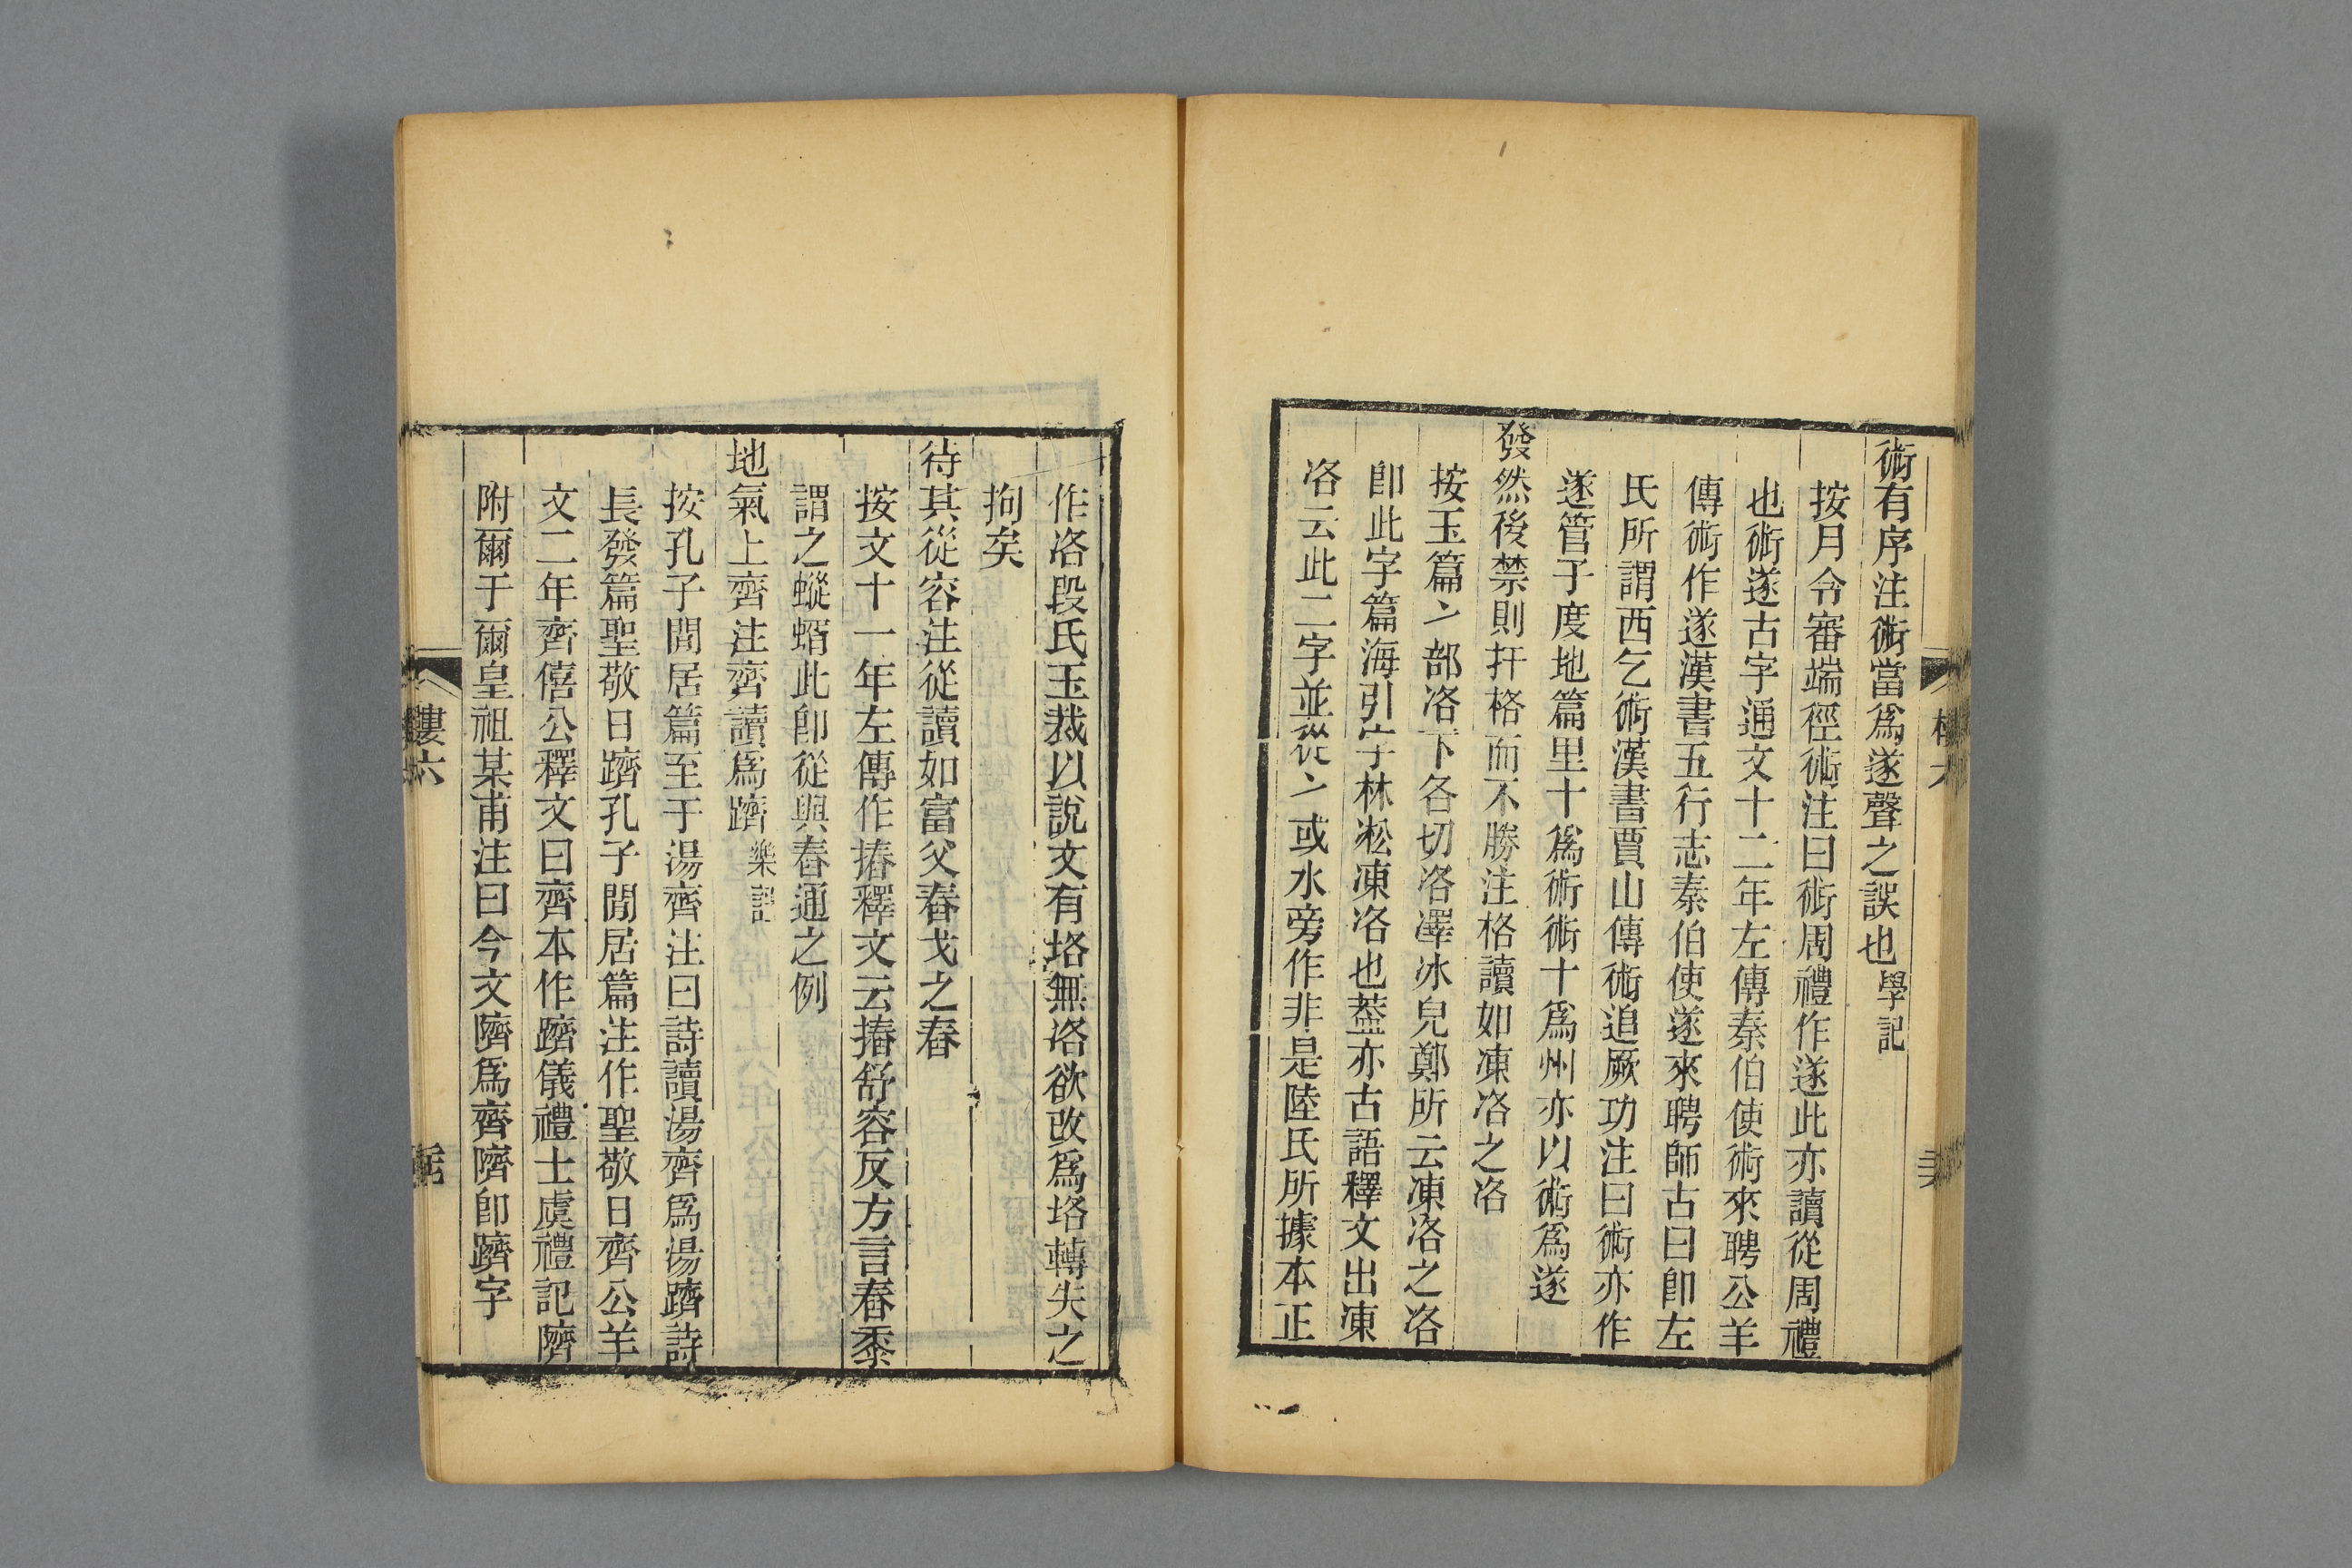 術有序注術當爲遂聲之誤也學記
按月令審端徑術注曰術周禮作遂此亦讀從周禮
也術遂古字通文十二年左傳秦伯使術來聘公羊
傳術作遂漢書五行志秦伯使遂來聘師古曰卽左
氏所謂西乞術漢書賈山傳術追厥功注曰術亦作
遂管子度地篇里十爲術術十爲州亦以術爲遂
發然後禁則扞格而不勝注格讀如凍洛之洛
按玉篇冫部洛下各切洛澤冰皃鄭所云凍洛之洛
卽此字篇海引字林凇凍洛也葢亦古語釋文出凍
洛云此二字並從冫或水旁作非是陸氏所據本正
作洛段氏玉裁以說文有垎無洛欲改爲垎轉失之
拘矣
待其從容注從讀如富父舂戈之舂
按文十一年左傳作摏釋文云摏舒容反方言舂黍
謂之蜙蝑此卽從與舂通之例
地氣上齊注齊讀爲躋樂記
按孔子閒居篇至于湯齊注曰詩讀湯齊爲湯躋詩
長發篇聖敬日躋孔子閒居篇注作聖敬日齊公羊
文二年齊僖公釋文曰齊本作躋儀禮士虞禮記隮
附爾于爾皇祖某甫注曰今文隮爲齊隮卽躋字
婁六